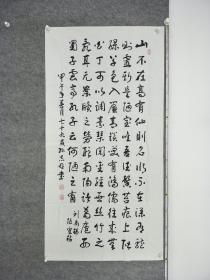 山不在高有仙则名水不在深有龙
则灵斯是陋室唯吾德馨苔痕上阶
绿草色入帘青谈笑有鸿儒往来无
白丁可以调素琴阅金经无丝竹之
乱耳无案牍之劳形南阳诸葛庐西
蜀子云亭孔子云何陋之有
刘禹锡
陋室铭
甲午年
七十六岁
书